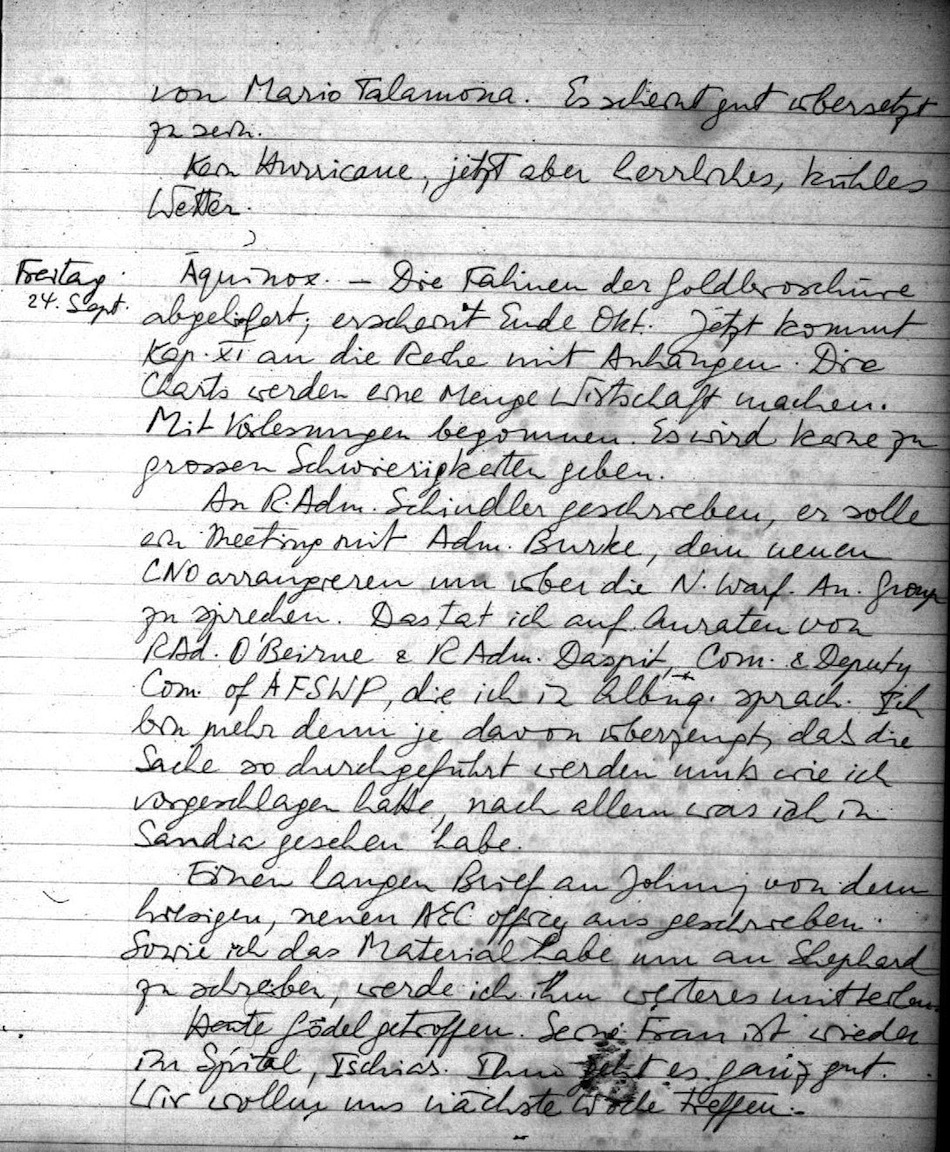 von Mario Talamona. Es scheint gut übersetzt
zu sein.
Kein Hurricane, jetzt aber herrliches, kühles
Wetter.
Freitag
24. Sept.
Äquinox. – Die Fahnen der Goldbroschüre
abgeliefert; erscheint Ende Okt. Jetzt kommt
Kap. XI an die Reihe mit Anhängen. Die
Charts werden eine Menge Wirtschaft machen.
Mit Vorlesungen begonnen. Es wird keine zu
grossen Schwierigkeiten geben.
An R. Adm. Schindler geschrieben, er solle
ein Meeting mit Adm. Burke, dem neuen
CNO arrangieren um über die N. Warf. An. Group
zu sprechen. Das tat ich auf Anraten von
RAd. O'Beirne & R Adm. Daspit, Com. & Deputy
Com. of AFSWP, die ich in Albuq. sprach. Ich
bin mehr denn je davon überzeugt, daß die
Sache so durchgeführt werden muß wie ich
vorgeschlagen hatte, nach allem was ich in
Sandia gesehen habe.
Einen langen Brief an Johnny von dem
hiesigen, neuen AEC office aus geschrieben.
Sowie ich das Material habe um an Shephard
zu schreiben, werde ich ihm weiteres mitteilen.
Heute Gödel getroffen. Seine Frau ist wieder
im Spital, Ischias. Ihm geht es ganz gut.
Wir wollen uns nächste Woche treffen. –